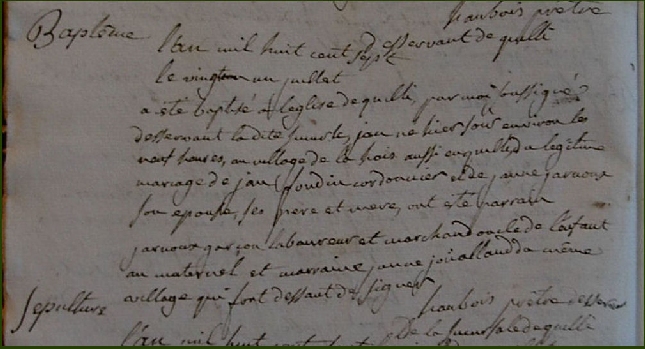 haubois prêtre
Baptême
desservant de quilli
l'an mil huit cent sept
le vingt un juillet
a été baptisé à l'eglise de quilli, par moi soussigné
desservant la dite, jan né hier soir environ les
neuf heures, au village de la hois aussi en quilli, du legitime
mariage de jan foudin cordonnier et de janne jarnoux
son epouse, ses pere et mere, ont eté parrain
jarnoux garçon laboureur et marchand oncle de l'anfant
au maternel et marraine janne joüalland du même
village qui font deffaut de signer
haubois prêtre desservant
Sepulture
de la succursale de quilli
l'an mil huit cent